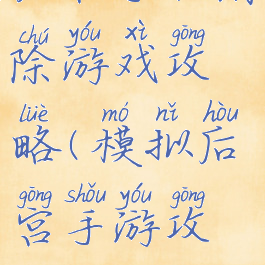 chú yóu xì gōng
除游戏攻
lüè mó nǐ hòu
略(模拟后
gōng shǒu yóu gōng
宫手游攻